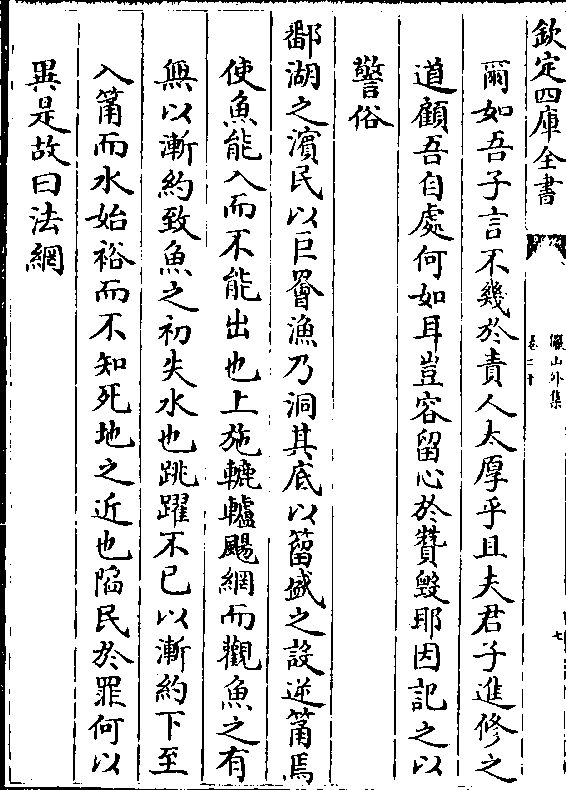 欽定四庫全書
儼山外集
卷二十
七
爾如吾子言不幾於責人太厚乎且夫君子進修之
道顧吾自處何如耳豈容留心於贊毀耶因記之以
警俗
鄱湖之濵民以巨罾漁乃洞其底以䈰盛之設逆筩焉
使魚能入而不能出也上施轆轤颺網而觀魚之有
無以漸約致魚之初失水也跳躍不已以漸約下至
入筩而水始裕而不知死地之近也陷民於罪何以
異是故曰法網